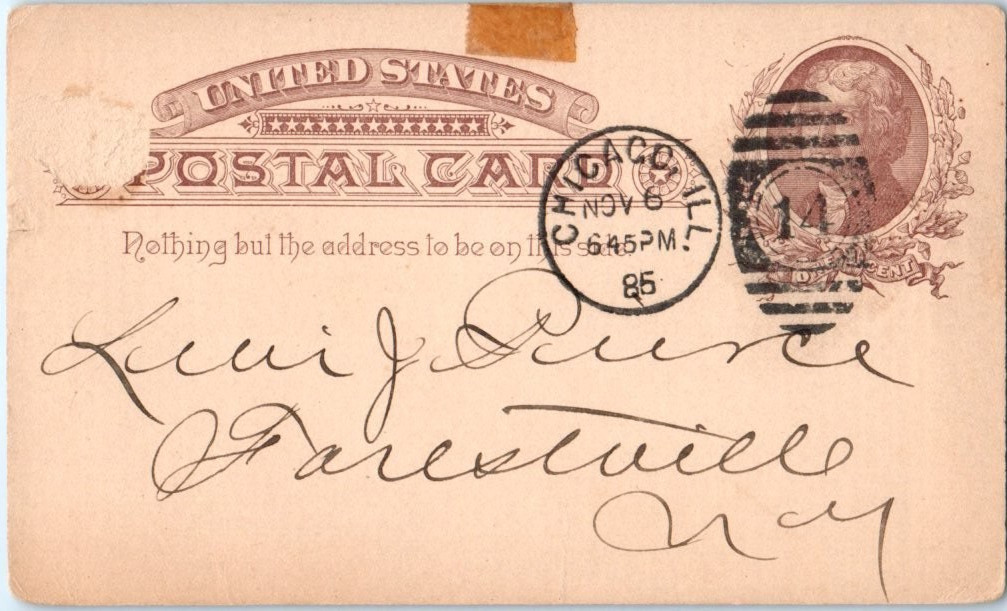 UNITED STATES
POSTAL CARD
Nothing but the address to be on this side.
CHICAGO, ILL.
NOV 6
645PM
85
14
ONE CENT
Levi J Pierce
Forestville
N Y